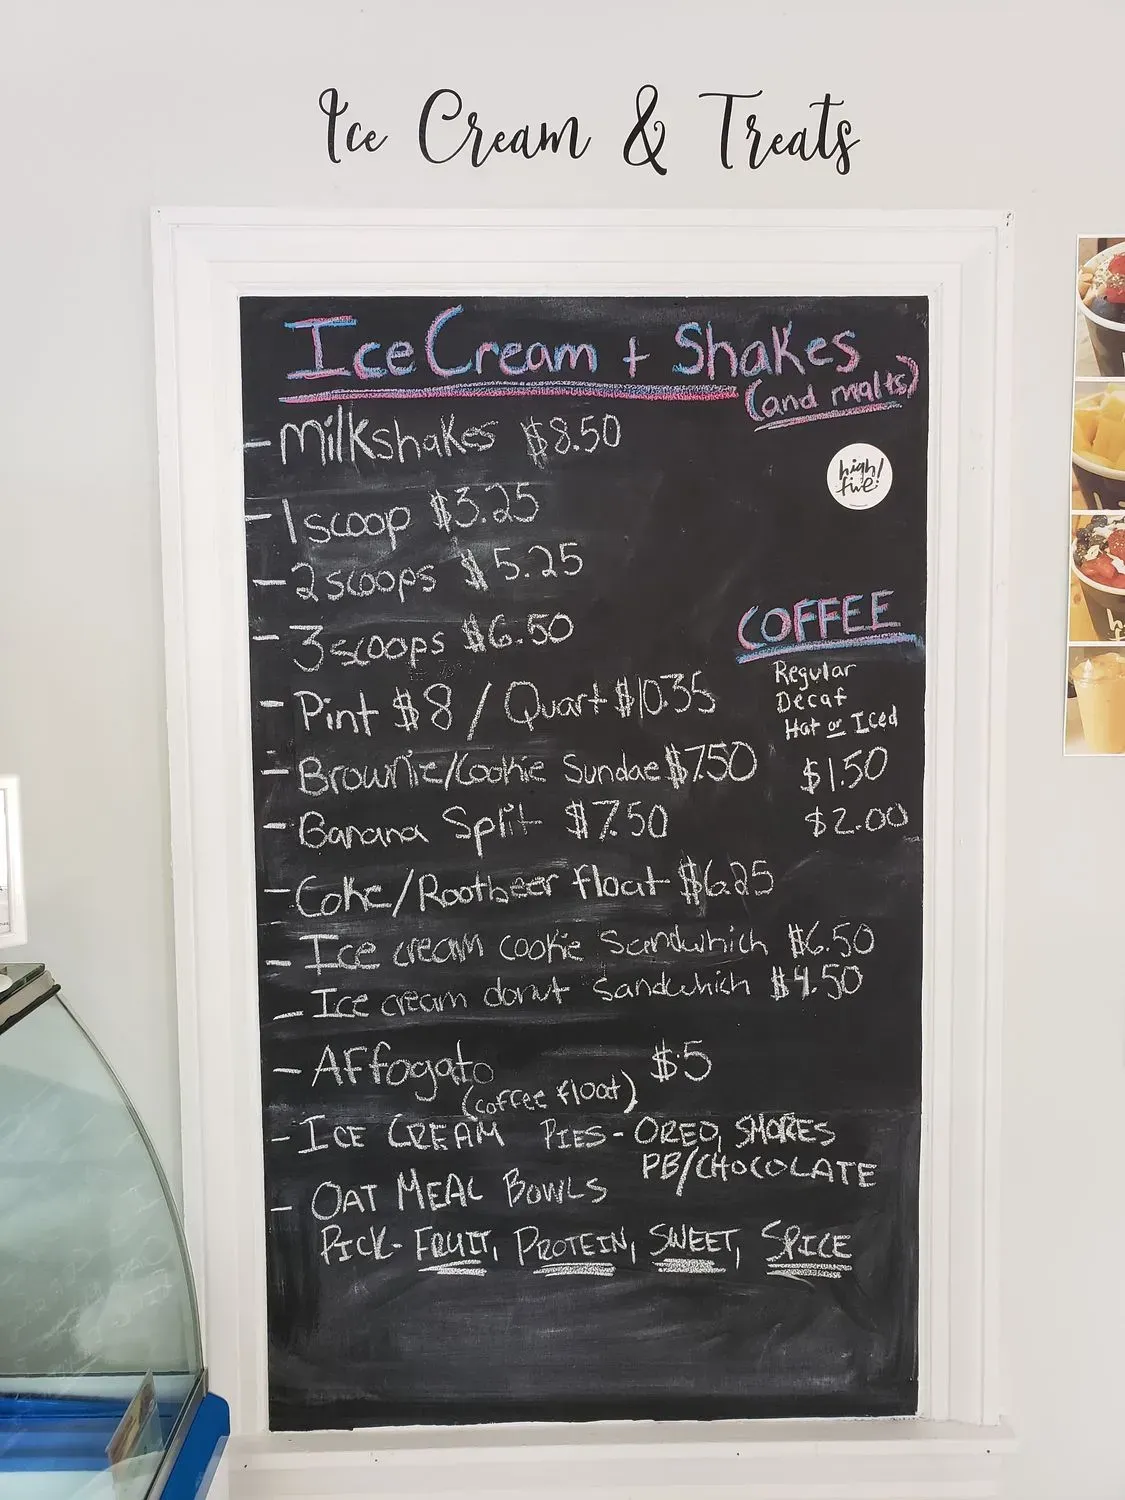 Ice Cream & Treats
Ice Cream + Shakes
(and malts)
- Milkshakes $8.50
high
five!
- 1 scoop $3.25
- 2 scoops $5.25
- 3 scoops $6.50
- Pint $8 / Quart $10.35
- Brownie/Cookie Sundae $7.50
- Banana Split $7.50
- Coke/Rootbeer float $6.25
- Ice cream cookie Sandwhich $6.50
- Ice cream donut Sandwhich $4.50
- Affogato $5
(coffee float)
- ICE CREAM PIES - OREO, SMORES
PB/CHOCOLATE
- OAT MEAL BOWLS
PICK- FRUIT, PROTEIN, SWEET, SPICE
COFFEE
Regular
Decaf
Hot or Iced
$1.50
$2.00